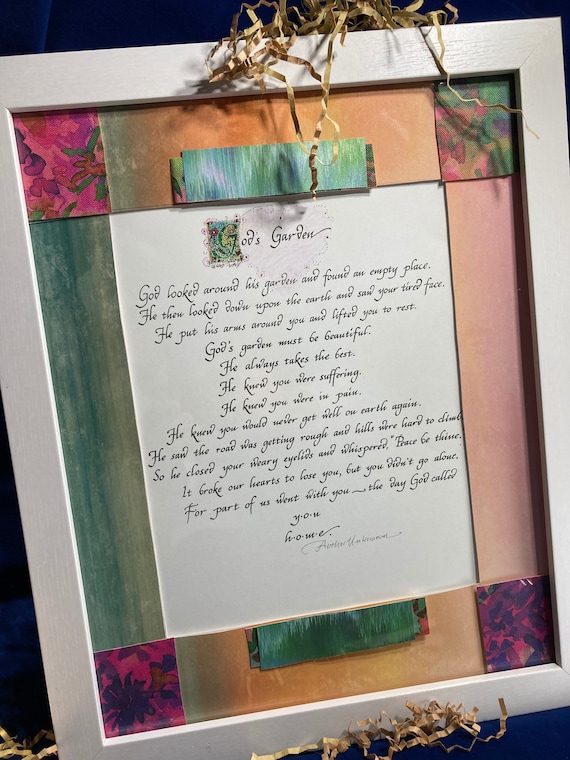 God's Garden
God looked around his garden and found an empty place.
He then looked down upon the earth and saw your tired face.
He put his arms around you and lifted you to rest.
God's garden must be beautiful.
He always takes the best.
He knew you were suffering.
He knew you were in pain.
He knew you would never get well on earth again.
He saw the road was getting rough and hills were hard to climb
So he closed your weary eyelids and whispered, "Peace be thine.
It broke our hearts to lose you, but you didn't go alone.
For part of us went with you — the day God called
y·o·u
h·o·m·e.
Author Unknown